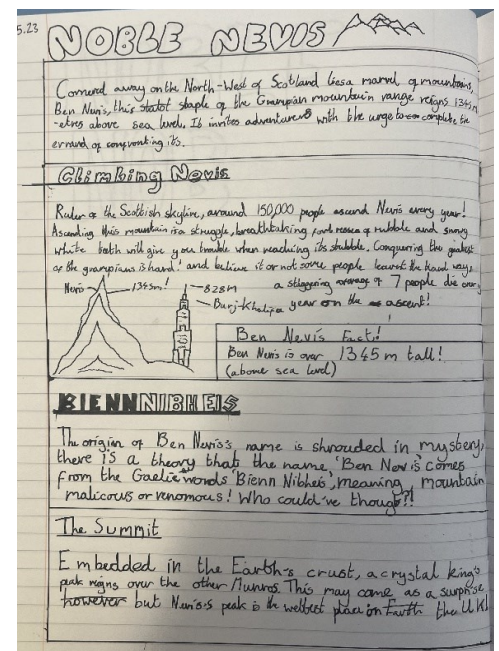 5.23
NOBLE NEVIS
Cornered away on the North-West of Scotland lies a marvel of mountains,
Ben Nevis, this staple of the Grampian mountain range reigns 1345m
-etres above sea level. It invites adventurers with the urge to complete the
errand of confronting its.
Climbing Nevis
Ruler of the Scottish skyline, around 150,000 people ascend Nevis every year!
Ascending this mountain is a struggle, breathtaking of rubble and snowy
white will give you trouble when reaching its stubble. Conquering the greatest
of the grampians is hard! and believe it or not some people learnt the hard way,
a staggering average of 7 people die every
year on the ascent!
Nevis
1345m!
828m
Burj-Khalifa
Ben Nevis Fact!
Ben Nevis is over 1345m tall!
(above sea level)
BIENN NIBHEIS
The origion of Ben Nevis's name is shrouded in mystery,
there is a theory that the name, 'Ben Nevis' comes
from the Gaelic words 'Bienn Nibheis', meaning mountain
malicous or venomous! Who could've though?!
The Summit
Embedded in the Earth's crust, a crystal king's
peak reigns over the other Munros. This may come as a surprise
however but Nevis's peak is the wettest place on Earth the UK!